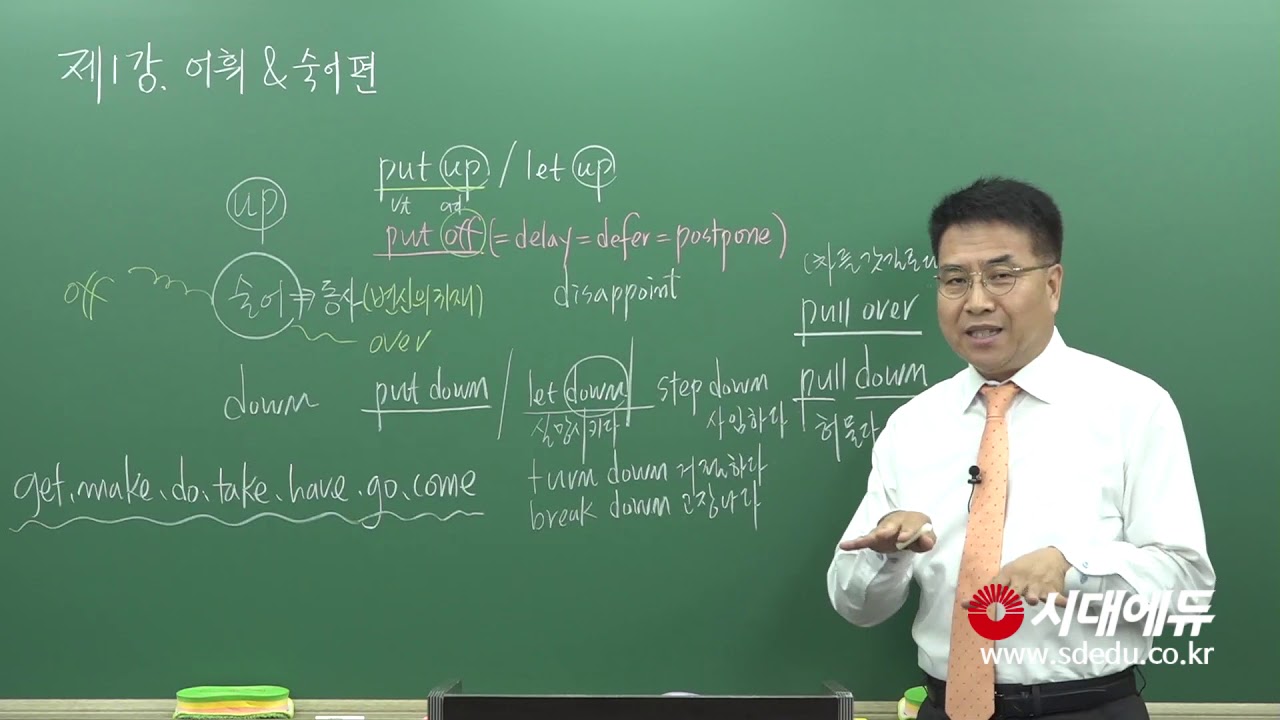 제1강. 어휘 & 숙어편
put up / let up
vt ad
up
put off (= delay = defer = postpone)
disappoint
off
숙어 ⇒ 동사 (변신의 귀재)
over
down
put down / let down
실망시키다
step down
사임하다
turn down 거절하다
break down 고장나다
get. make. do. take. have. go. come
(차를 갓길로
pull over
pull down
허물다
시대에듀
www.sdedu.co.kr